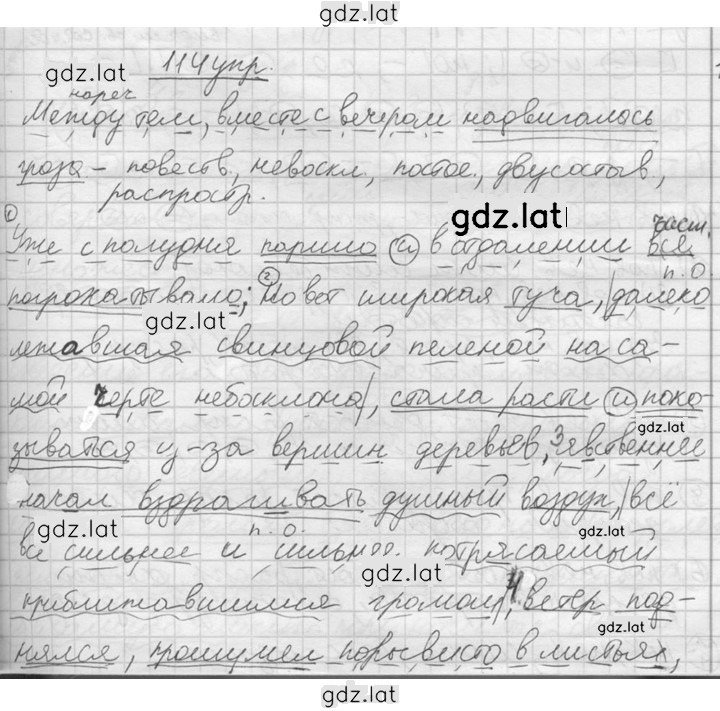 gdz.lat
114упр.
gdz.lat
нареч
Между тем, вместе с вечером надвигалась
гроза – повеств., невоскл., постое., двусостав.,
распростр.
gdz.lat
част.
① Уже с полудня парило и в отдалении всё
п.о.
погрохатывало; ② но вот широкая туча, |далеко
gdz.lat
лежавшая свинцовой пеленой на са-
мой черте небосклона|, стала расти и пока-
gdz.lat
зываться из-за вершин деревьев, 3явственнее
начал вздрагивать душный воздух, |всё
п.о.
gdz.lat
всё сильнее и сильнее потрясаемый
gdz.lat
приближавшимся громом|, 4ветер под-
gdz.lat
нялся, прошумел порывисто в листьях,
gdz.lat